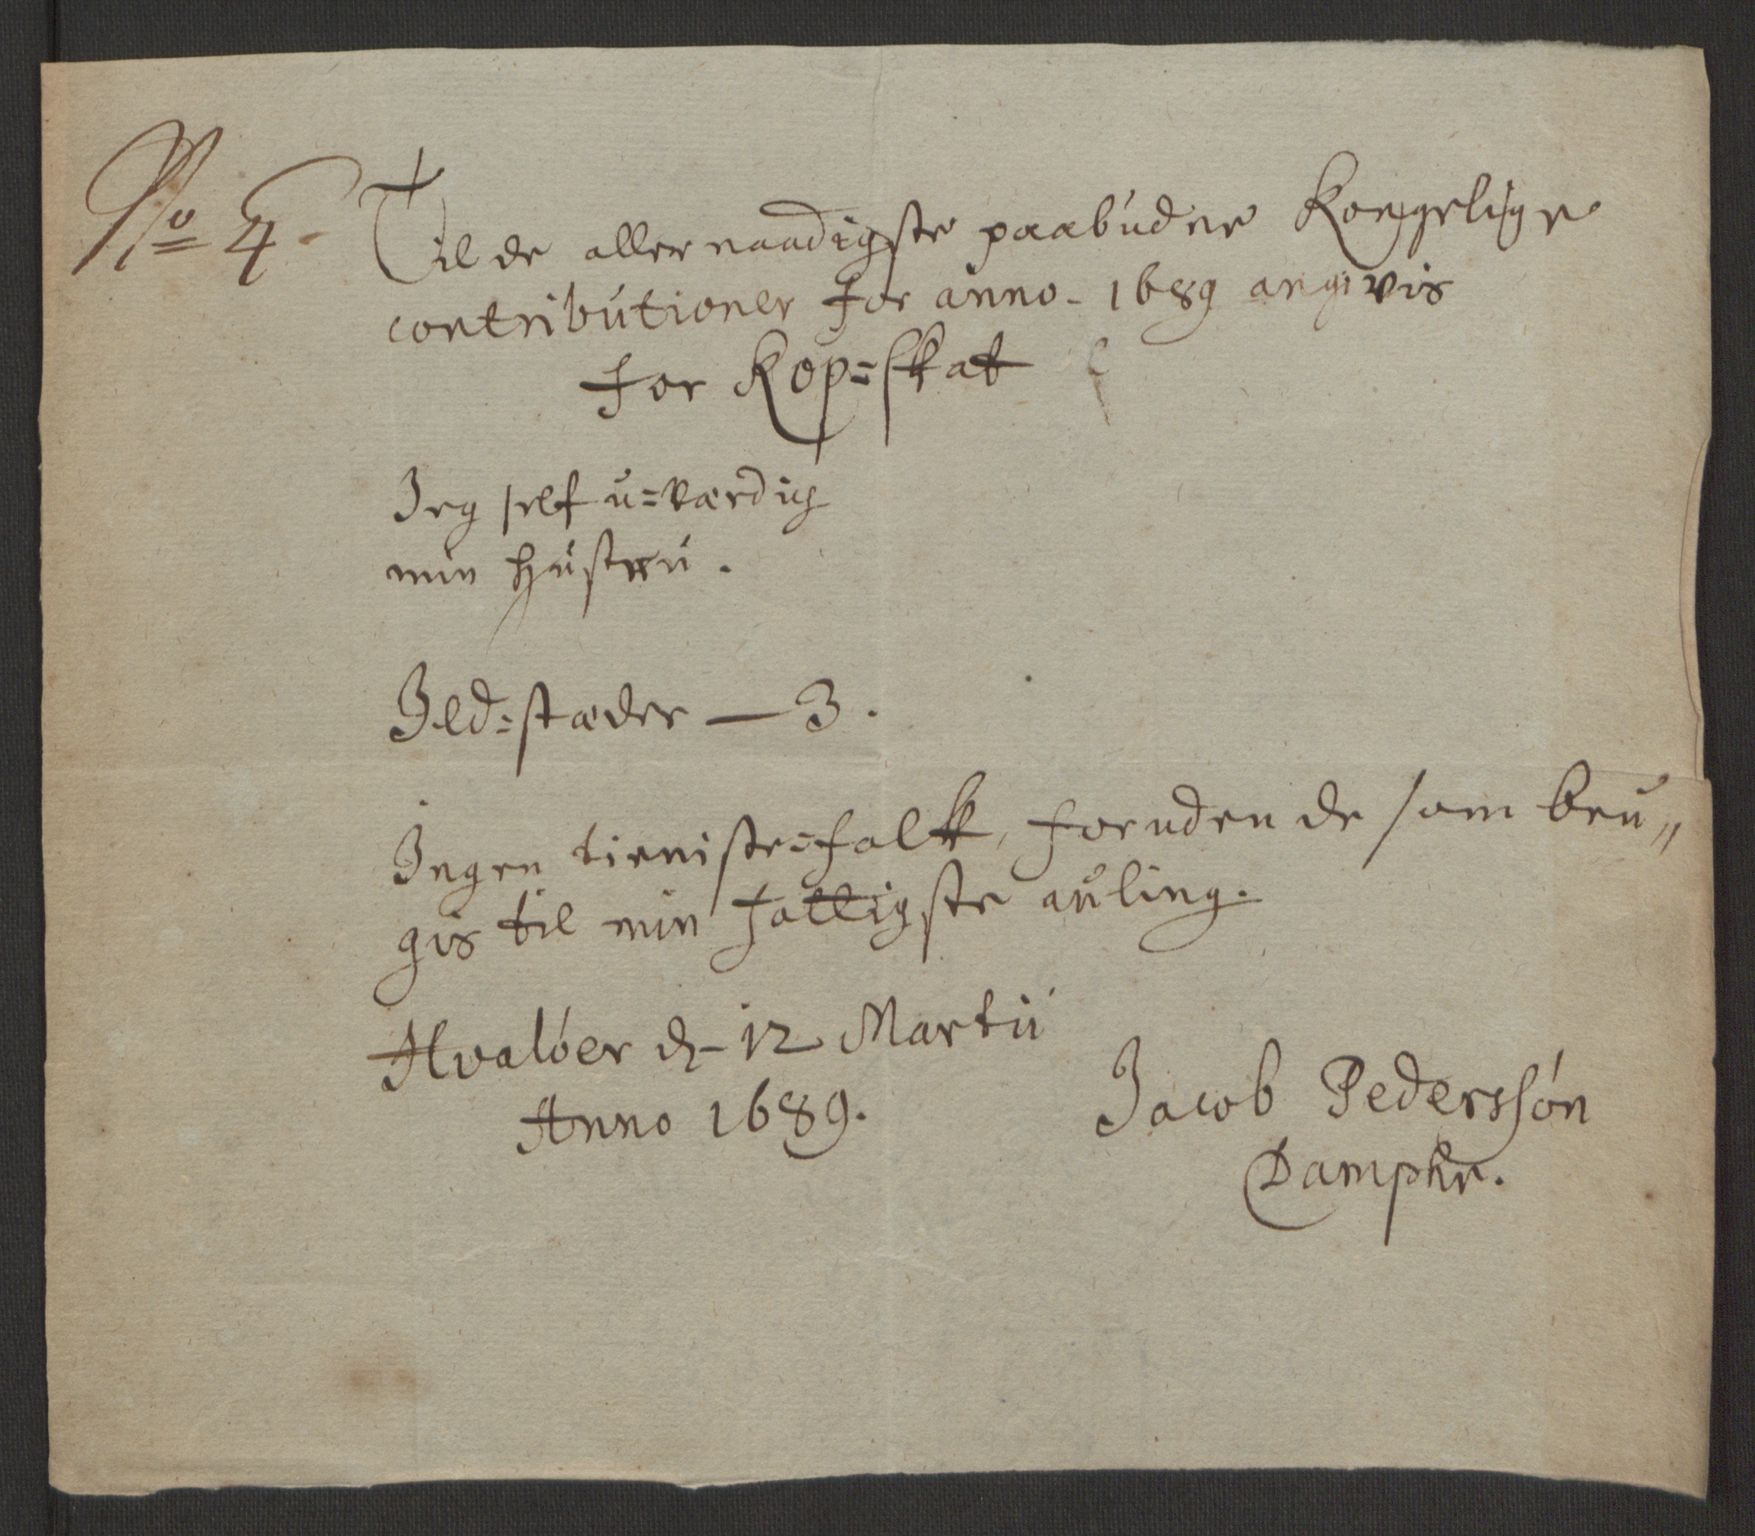 No 4.
Til de allernaadigste paabudne Kongelige
contributioner for anno - 1689 angivis
for Kop=skat
Jeg self u=værdig
min hustru.
Ild=stæder — 3.
Ingen tieniste=folk, foruden de som beu„
gis til min fattigste auling.
Hvaløer d. 12 Martii
Anno 1689.
Jacob Pederssøn
Dampke.